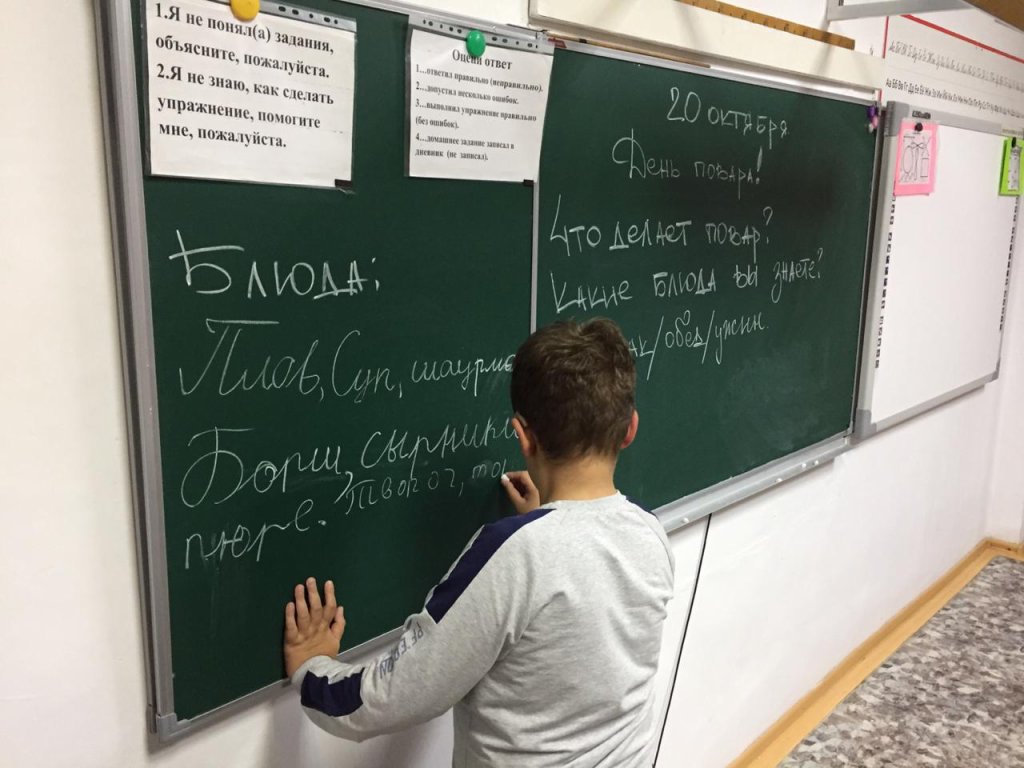 1.Я не понял(а) задания,
объясните, пожалуйста.
2.Я не знаю, как сделать
упражнение, помогите
мне, пожалуйста.
Оцени ответ
1...ответил правильно (неправильно).
2...допустил несколько ошибок.
3...выполнил упражнение правильно
(без ошибок).
4...домашнее задание записал в
дневник (не записал).
20 октября
День повара!
Что делает повар?
Какие блюда вы знаете?
/обед/ужин.
Блюда:
Плов, Суп, шаурма
Борш, сырники
пюре. Творог,